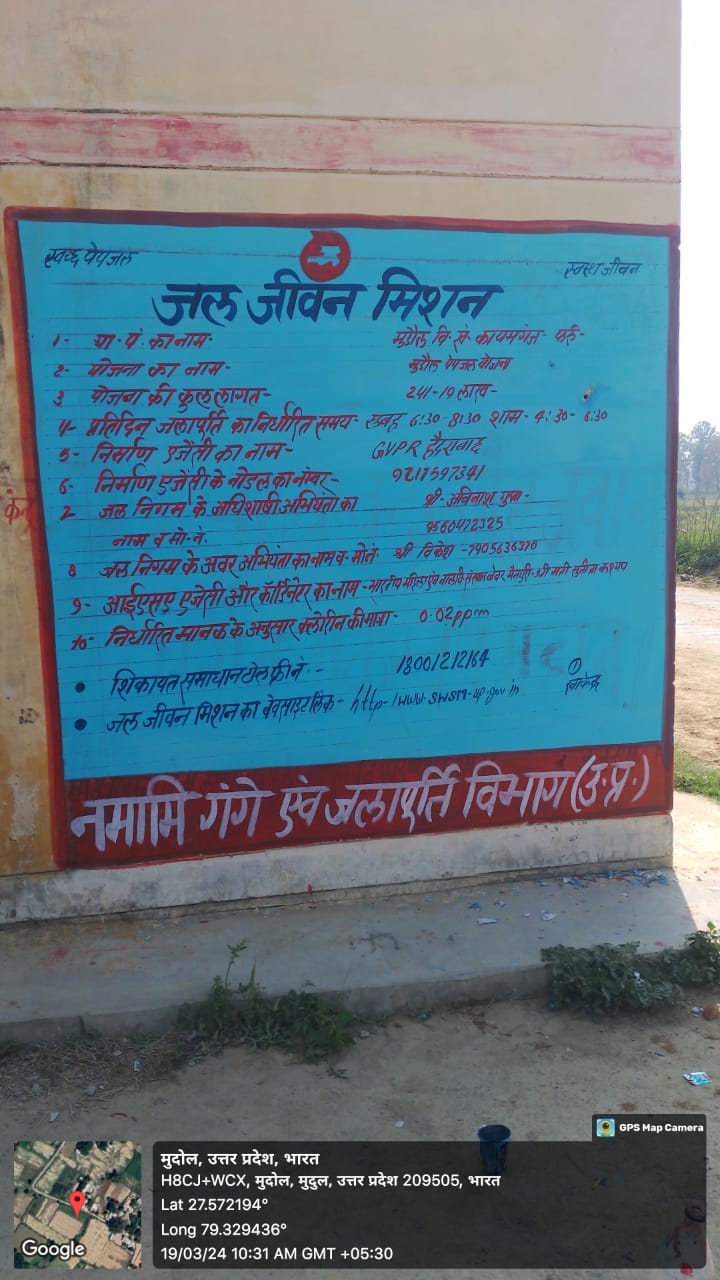 स्वच्छ पेयजल
स्वस्थ जीवन
जल जीवन मिशन
1- ग्रा. पं. का नाम- मुडौल वि. खं. कायमगंज फर्रु-
2- योजना का नाम- मुडौल पेयजल योजना
3 योजना की कुल लागत- 241-19 लाख-
4- प्रतिदिन जलापूर्ति का निर्धारित समय- सुबह 6:30-8:30 शाम- 4:30- 6:30
5- निर्माण एजेंसी का नाम- GVPR हैदराबाद
6- निर्माण एजेंसी के नोडल का नम्बर-
2 जल निगम के अधिशाषी अभियंता का श्री- अविनाश गुप्ता-
नाम व मो. नं. 9560472325
8 जल निगम के अवर अभियंता का नाम व- मो नं. श्री विकेश -7905636370
9- आईएसए एजेंसी और कॉर्डिनेटर का नाम-
10- निर्धारित मानक के अनुसार क्लोरिन की मात्रा- 0.02ppm
• शिकायत समाधान टोल फ्री नं - 18001212164
• जल जीवन मिशन का वेबसाइट लिंक- http-/www.swsm-up-gov.in
नमामि गंगे एंव जलापूर्ति विभाग (उ.प्र.)
GPS Map Camera
मुदोल, उत्तर प्रदेश, भारत
H8CJ+WCX, मुदोल, मुदुल, उत्तर प्रदेश 209505, भारत
Lat 27.572194°
Long 79.329436°
19/03/24 10:31 AM GMT +05:30
Google